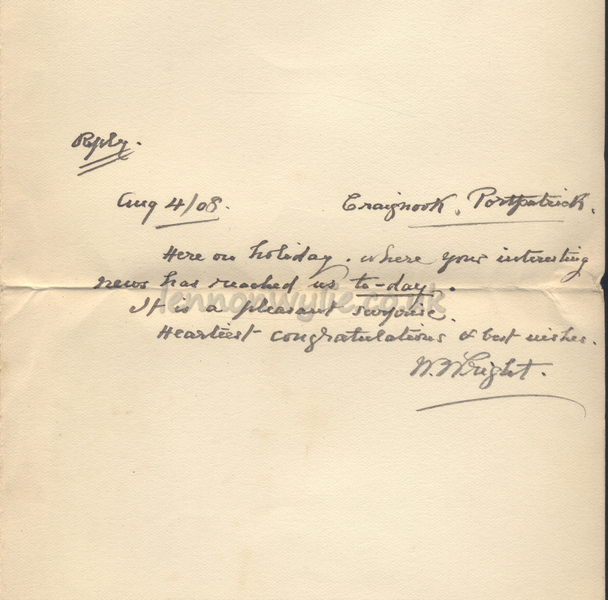 Reply.
Aug 4/08. Craignook, Portpatrick.
Here on holiday. where your interesting
news has reached us to-day.
lennonwylie.co.uk
It is a pleasant surprise.
Heartiest congratulations & best wishes.
W. Wright.